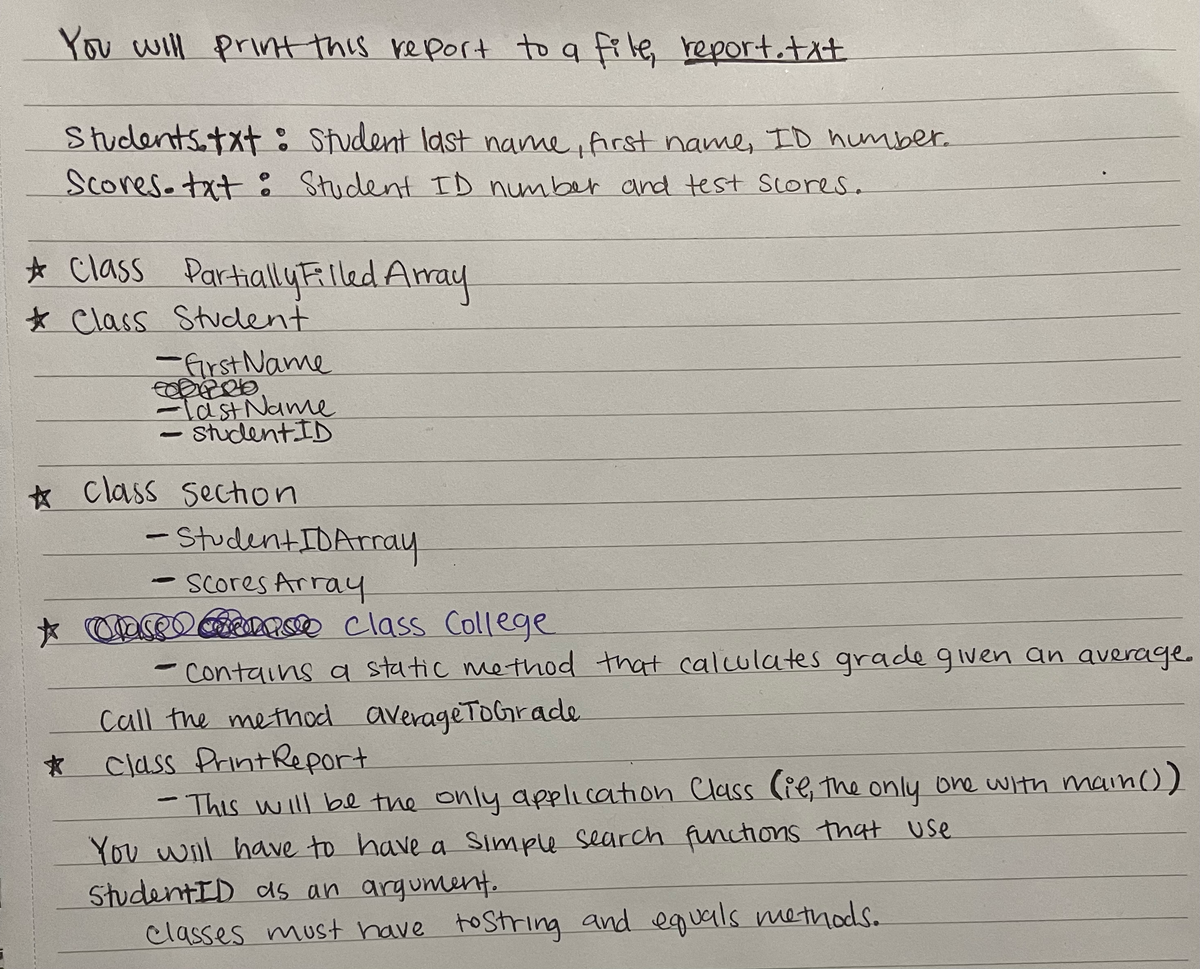 You will print this report to a file, report.txt
Students.txt : Student last name, first name, ID number.
Scores.txt : Student ID number and test scores.
☆ Class PartiallyFilledArray
☆ Class Student
- firstName
- lastName
- studentID
☆ Class section
- StudentIDArray
- scoresArray
☆ Class College
- contains a static method that calculates grade given an average.
Call the method averageToGrade
☆ Class PrintReport
- This will be the only application Class (ie, the only one with main())
You will have to have a simple search functions that use
StudentID as an argument.
Classes must have toString and equals methods.